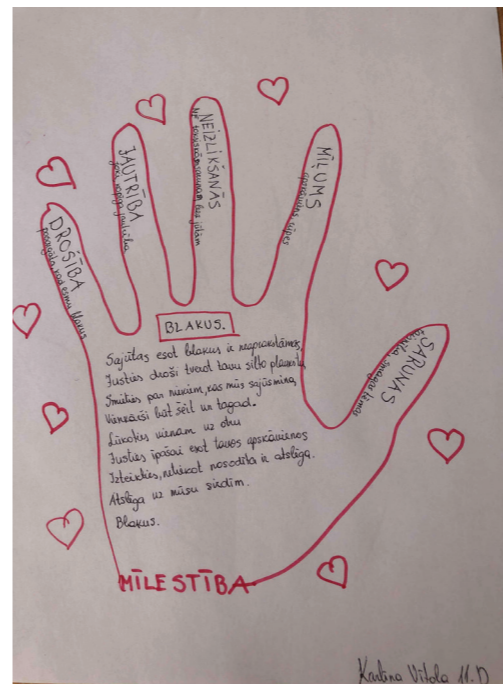 DROŠĪBA
pasargāta, kad esmu blakus
JAUTRĪBA
joki, kopīga jautrība
NEIZLIKŠANĀS
MĪĻUMS
rūpes
SARUNAS
BLAKUS.
Sajūtas esot blakus ir neaprakstāmas,
Justies droši tverot tavu silto plaukstu
Smieties par niekiem, kas mūs sajūsmina,
Vienkārši būt šeit un tagad.
Lūkoties vienam uz otru
Justies īpašai esot tavos apskāvienos
Izteikties, netiekot nosodīta ir atslēga.
Atslēga uz mūsu sirdīm.
Blakus.
MĪLESTĪBA
Karlīna Vītola 11.D